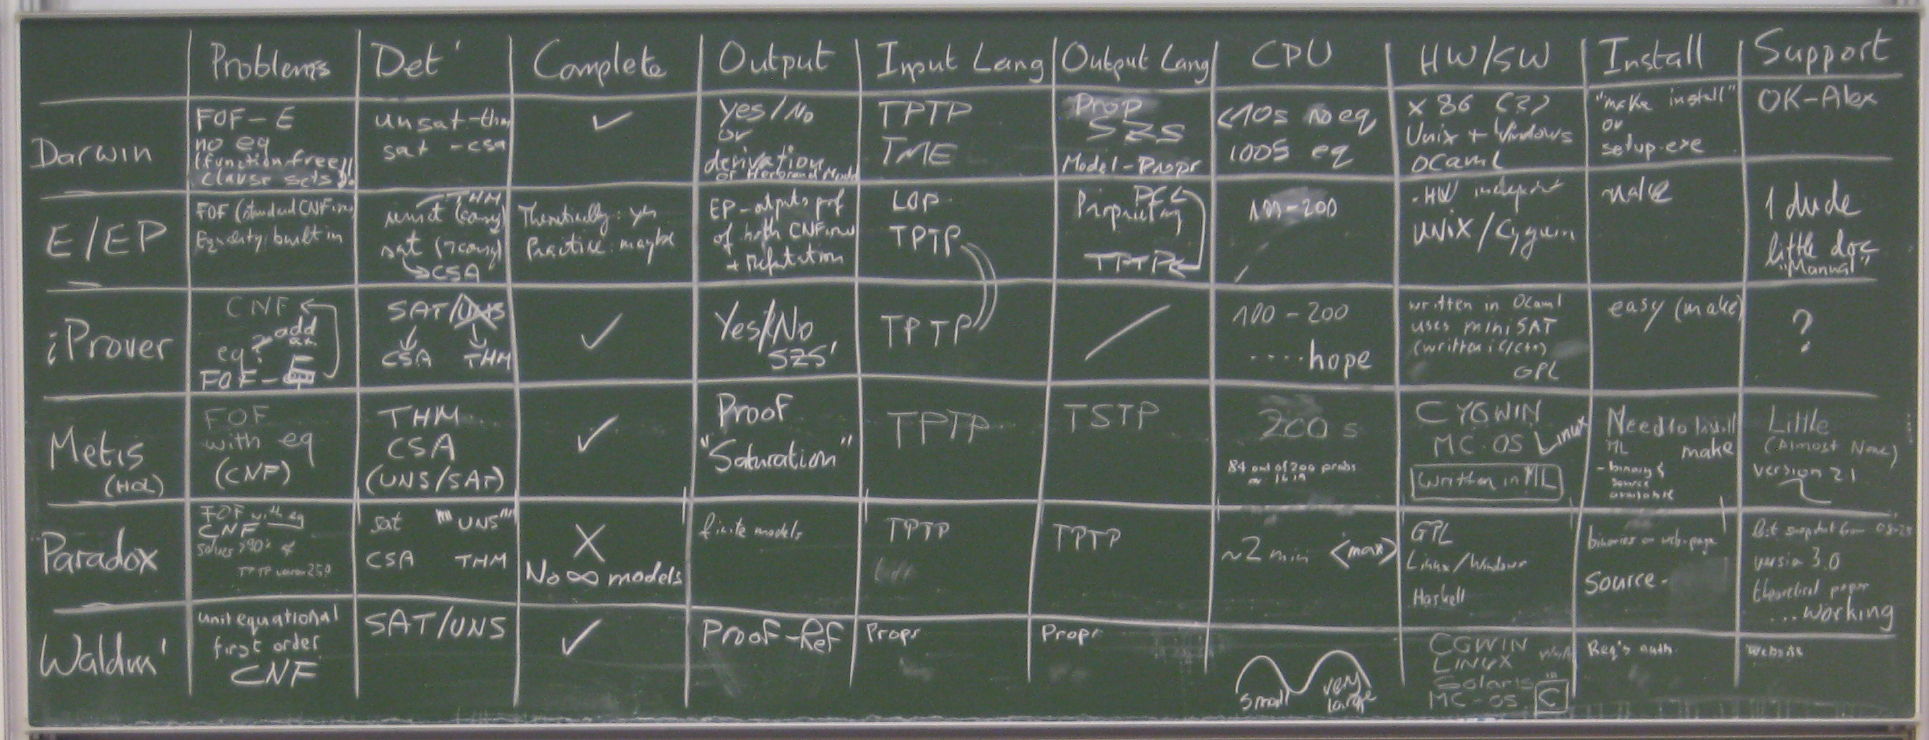 Problems Det' Complete Output Input Lang Output Lang CPU HW/SW Install Support
Darwin
FOF-E
no eq
(function-free)
clause sets
unsat-thm
sat -csa
✓
Yes/No
or
derivation
or Herbrand Model
TPTP
TME
Prop
SZS
Model-Propr
<10s no eq
100s eq
x86 (?)
Unix + Windows
OCaml
"make install"
or
setup.exe
OK-Alex
E/EP
FOF (standard CNF
Equality: built in
THM
unsat (easy)
sat (
CSA
Theoretically: yes
Practice: maybe
EP-outputs prf
of both CNF
+ Refutation
LOP
TPTP
PCL
Proprietary
TPTP
100-200
HW independent
UNIX/Cygwin
make
1 dude
little doc
"Manual"
iProver
CNF
add
eq?
FOF-
SAT/UNS
CSA THM
✓
Yes/No
SZS'
TPTP
/
100-200
....hope
written in Ocaml
uses miniSAT
(written in C/C++)
GPL
easy (make)
?
Metis
(HOL)
FOF
with eq
(CNF)
THM
CSA
(UNS/SAT)
✓
Proof
"Saturation"
TPTP
TSTP
200 s
84 out of 200 probs
CYGWIN
MC-OS Linux
Written in ML
Need to install
ML make
-binary &
source
available
Little
(Almost None)
version 2.1
Paradox
FOF with eq
CNF
solves >90%
TPTP version 2.5.0
sat "UNS"
CSA THM
X
No ∞ models
finite models
TPTP
TPTP
~2 min <max>
GPL
Linux/Windows
Haskell
binaries on web-page
Source-
last snapshot from
version 3.0
theoretical paper
...working
Waldm'
unit equational
first order
CNF
SAT/UNS
✓
Proof-Ref
Propr
Propr
small very
large
CGWIN
LINUX
Solaris
MC-OS C
Req's auth.
Website